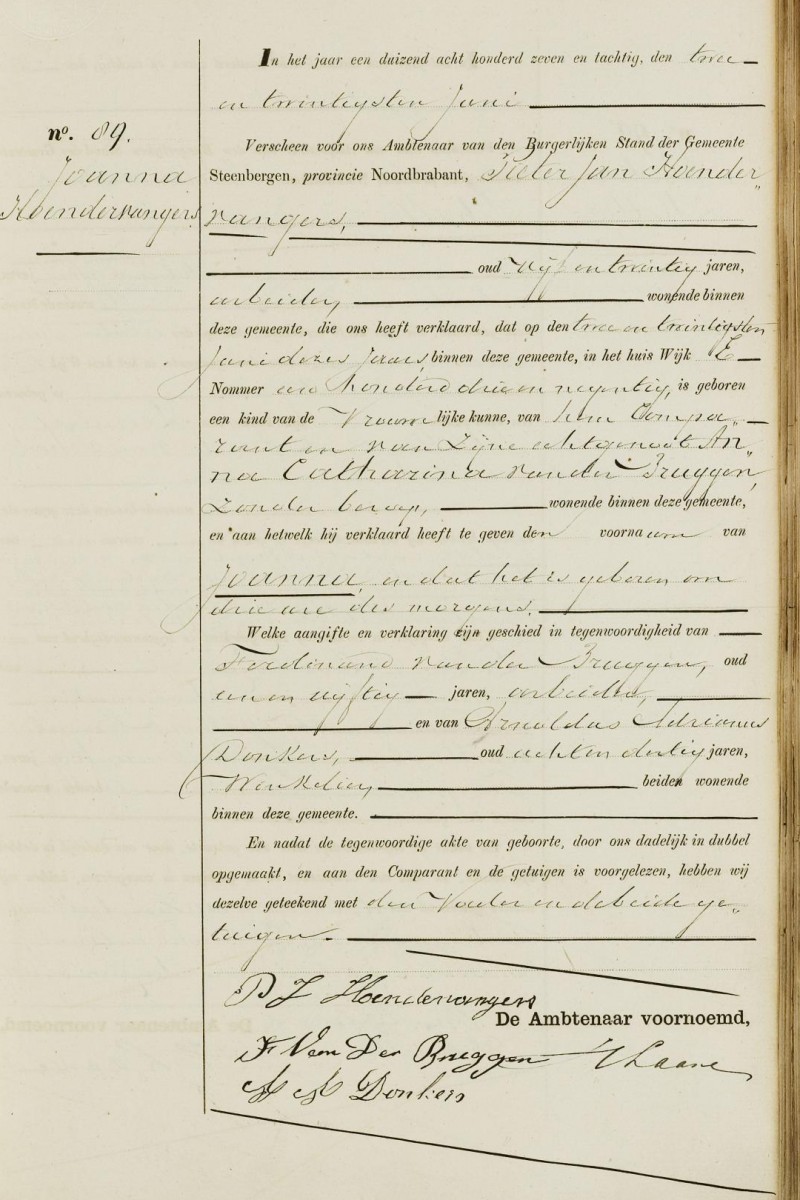 nº. 89.
Joanna
Hoendervangers
In het jaar een duizend acht honderd zeven en tachtig, den twee
en twintigsten Juni
Verscheen voor ons Ambtenaar van den Burgerlijken Stand der Gemeente
Steenbergen, provincie Noordbrabant, Pieter Jan Hoender„
vangers,
oud vijf en twintig jaren,
arbeider, wonende binnen
deze gemeente, die ons heeft verklaard, dat op den twee en twintigsten
Juni dezes jaars, binnen deze gemeente, in het huis Wijk E
Nommer een honderd drie en negentig, is geboren
een kind van de Vrouwelijke kunne, van hem Compa„
rant en van zijne echtgenoot An„
na Catharina van der Bruggen,
zonder beroep, wonende binnen deze gemeente,
en aan hetwelk hij verklaard heeft te geven den voornaam van
Joanna, en dat het is geboren om
drie ure des morgens.
Welke aangifte en verklaring zijn geschied in tegenwoordigheid van
Ferdinand van der Bruggen, oud
een en vijftig jaren, arbeider,
en van Arnoldus Adrianus
Donkers, oud acht en dertig jaren,
Winkelier, beiden wonende
binnen deze gemeente.
En nadat de tegenwoordige akte van geboorte, door ons dadelijk in dubbel
opgemaakt, en aan den Comparant en de getuigen is voorgelezen, hebben wij
dezelve geteekend met den Vader en de beide ge„
tuigen.
P J Hoendervangers
De Ambtenaar voornoemd,
F Van Der Bruggen
A A Donkers